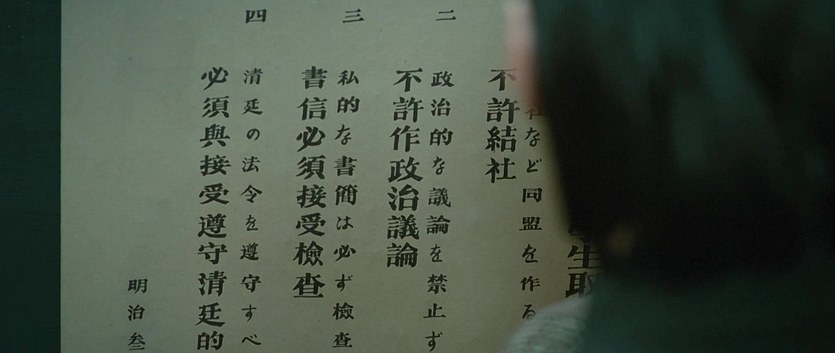 生取
社など同盟を作る
不許結社
二
政治的な議論を禁止ず
不許作政治議論
三
私的な書簡は必ず檢查
書信必須接受檢查
四
清廷の法令を遵守すべ
必須與接受遵守清廷的
明治叁